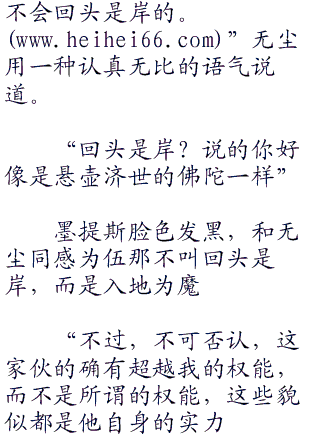 不会回头是岸的。
(www.heihei66.com)”无尘
用一种认真无比的语气说
道。
“回头是岸？说的你好
像是悬壶济世的佛陀一样”
墨提斯脸色发黑，和无
尘同感为伍那不叫回头是
岸，而是入地为魔
“不过，不可否认，这
家伙的确有超越我的权能，
而不是所谓的权能，这些貌
似都是他自身的实力